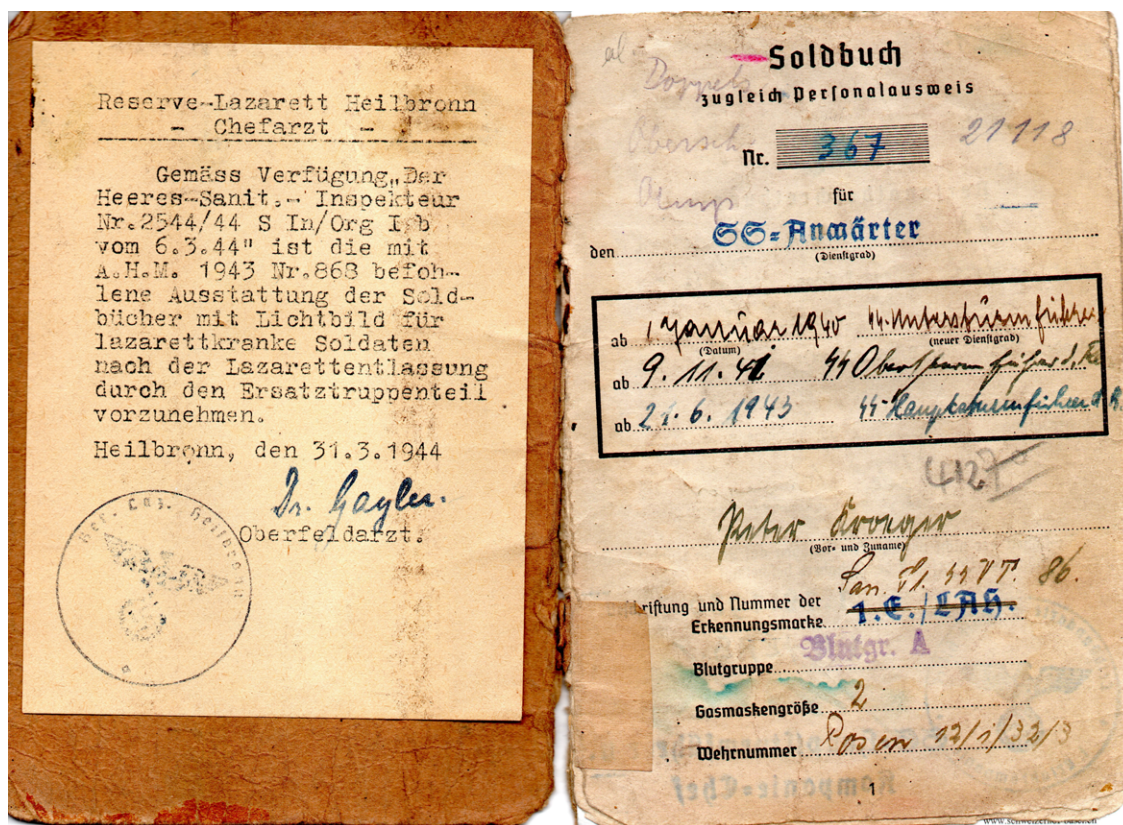 Reserve-Lazarett Heilbronn
- Chefarzt -
Gemäss Verfügung „Der
Heeres-Sanit.- Inspekteur
Nr.2544/44 S In/Org I b
vom 6.3.44" ist die mit
A.H.M. 1943 Nr.868 befoh-
lene Ausstattung der Sold-
bücher mit Lichtbild für
lazarettkranke Soldaten
nach der Lazarettentlassung
durch den Ersatztruppenteil
vorzunehmen.
Heilbronn, den 31.3.1944
Dr. Gayler.
Oberfeldarzt.
Res. Laz. Heilbronn
Soldbuch
zugleich Personalausweis
Nr. 367
21118
für
den SS-Anwärter
(Dienstgrad)
ab 1 Januar 1940 SS-Untersturmführer
(Datum) (neuer Dienstgrad)
ab 9.11.41 SS Obersturmführer d. R.
ab 21.6.1943 SS Hauptsturmführer d. R.
4127
Peter Kroeger
(Vor- und Zuname)
San. SS VT. 86.
riftung und Nummer der
Erkennungsmarke 1.E./LAH.
Blutgruppe Blutgr. A
Gasmaskengröße 2
Wehrnummer Posen 12/1/32/3
Kompanie-Chef
1